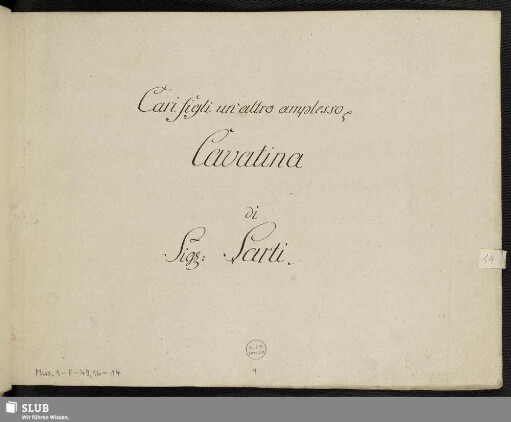 Cari figli un' altro amplesso
Cavatina
di
Sigr: Sarti.
14
Mus. 1-F-49,16-14
1
SLUB
Wir führen Wissen.